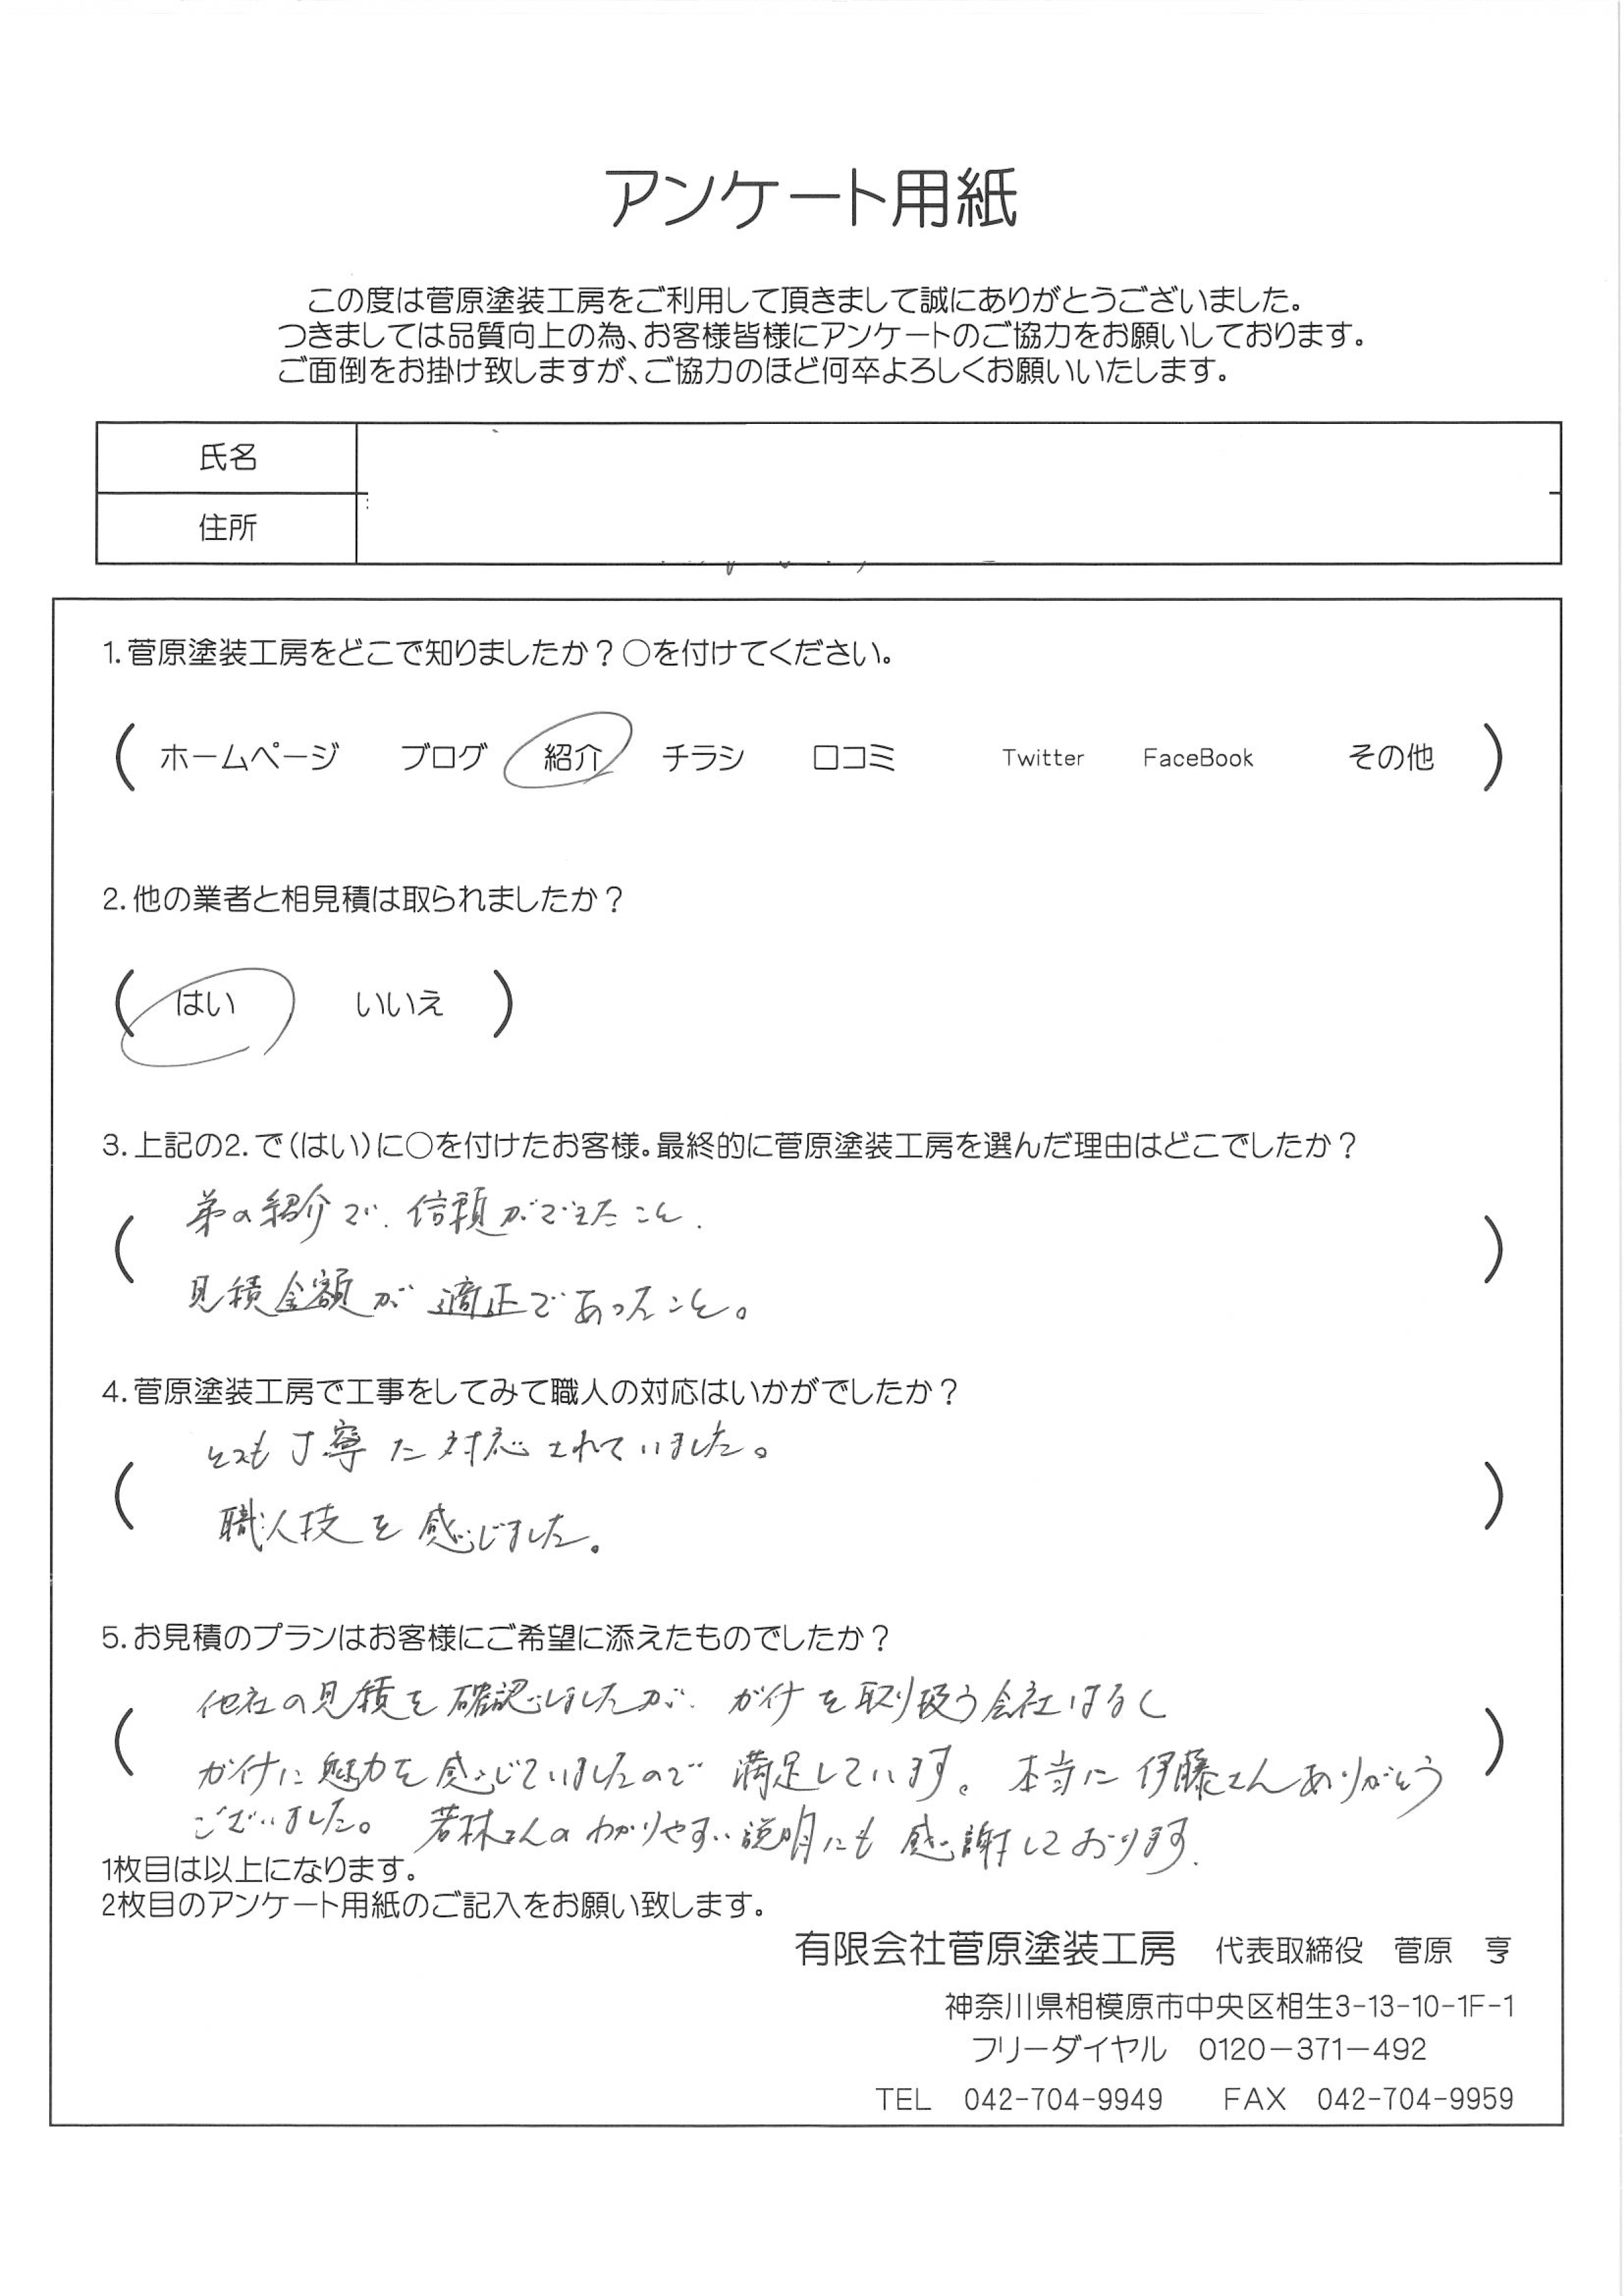 アンケート用紙
この度は菅原塗装工房をご利用して頂きまして誠にありがとうございました。
つきましては品質向上の為、お客様皆様にアンケートのご協力をお願いしております。
ご面倒をお掛け致しますが、ご協力のほど何卒よろしくお願いいたします。
氏名
住所
1. 菅原塗装工房をどこで知りましたか？○を付けてください。
( ホームページ ブログ 紹介 チラシ 口コミ Twitter FaceBook その他 )
2. 他の業者と相見積は取られましたか？
( はい いいえ )
3. 上記の2. で(はい)に○を付けたお客様。最終的に菅原塗装工房を選んだ理由はどこでしたか？
弟の紹介で、信頼ができたこと、
見積金額が適正であったこと。
4. 菅原塗装工房で工事をしてみて職人の対応はいかがでしたか？
とても丁寧な対応されていました。
職人技を感じました。
5. お見積のプランはお客様にご希望に添えたものでしたか？
他社の見積を確認しましたが、ガイナを取り扱う会社はなく
ガイナに魅力を感じていましたので満足しています。本当に伊藤さんありがとう
ございました。若林さんのわかりやすい説明にも感謝しております。
1枚目は以上になります。
2枚目のアンケート用紙のご記入をお願い致します。
有限会社菅原塗装工房 代表取締役 菅原 亨
神奈川県相模原市中央区相生3-13-10-1F-1
フリーダイヤル 0120-371-492
TEL 042-704-9949 FAX 042-704-9959